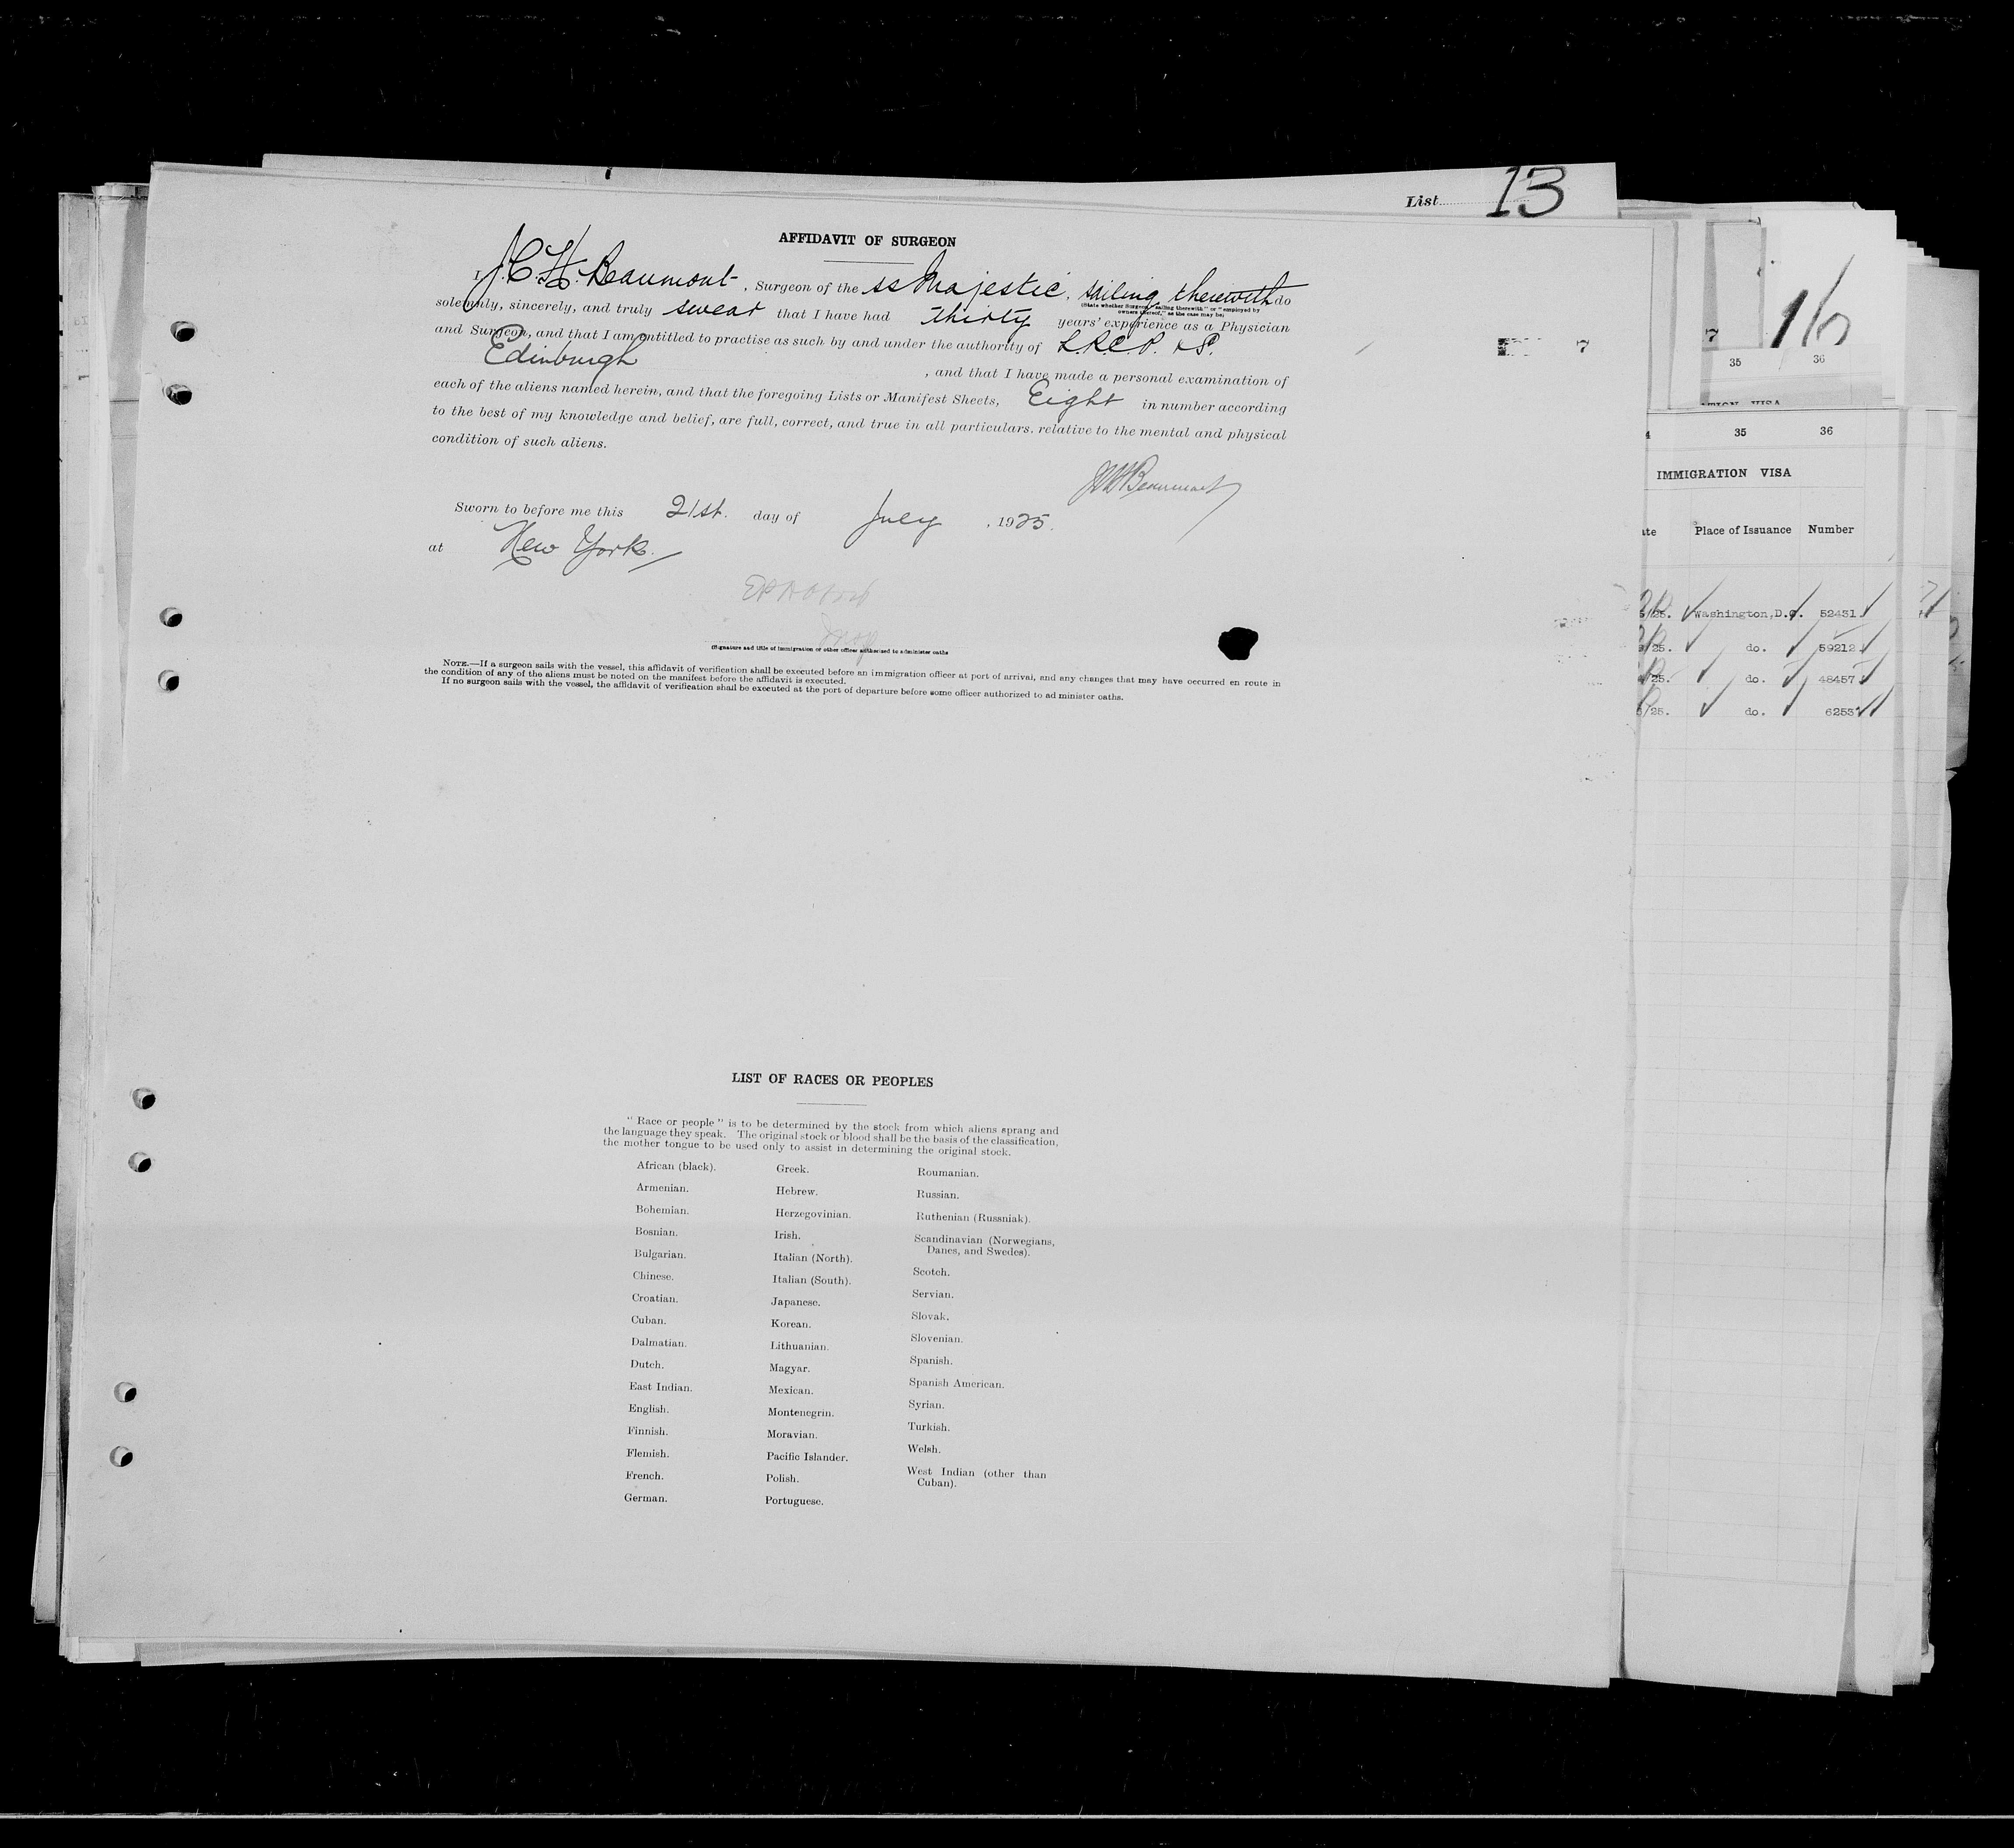 List 13
AFFIDAVIT OF SURGEON
I J.C.H. Beaumont, Surgeon of the ss Majestic, sailing therewith do
(State whether Surgeon "sailing therewith" or "employed by
owners thereof," as the case may be)
solemnly, sincerely, and truly swear that I have had thirty years' experience as a Physician
and Surgeon, and that I am entitled to practise as such by and under the authority of L.R.C.P. & S.
Edinburgh, and that I have made a personal examination of
each of the aliens named herein, and that the foregoing Lists or Manifest Sheets, Eight in number according
to the best of my knowledge and belief, are full, correct, and true in all particulars, relative to the mental and physical
condition of such aliens.
JCHBeaumont
Sworn to before me this 21st. day of July, 1925.
at New York.
Insp
(Signature and title of immigration or other officer authorized to administer oaths
NOTE.—If a surgeon sails with the vessel, this affidavit of verification shall be executed before an immigration officer at port of arrival, and any changes that may have occurred en route in
the condition of any of the aliens must be noted on the manifest before the affidavit is executed.
If no surgeon sails with the vessel, the affidavit of verification shall be executed at the port of departure before some officer authorized to ad minister oaths.
LIST OF RACES OR PEOPLES
"Race or people" is to be determined by the stock from which aliens sprang and
the language they speak. The original stock or blood shall be the basis of the classification,
the mother tongue to be used only to assist in determining the original stock.
African (black).
Armenian.
Bohemian.
Bosnian.
Bulgarian.
Chinese.
Croatian.
Cuban.
Dalmatian.
Dutch.
East Indian.
English.
Finnish.
Flemish.
French.
German.
Greek.
Hebrew.
Herzegovinian.
Irish.
Italian (North).
Italian (South).
Japanese.
Korean.
Lithuanian.
Magyar.
Mexican.
Montenegrin.
Moravian.
Pacific Islander.
Polish.
Portuguese.
Roumanian.
Russian.
Ruthenian (Russniak).
Scandinavian (Norwegians,
Danes, and Swedes).
Scotch.
Servian.
Slovak.
Slovenian.
Spanish.
Spanish American.
Syrian.
Turkish.
Welsh.
West Indian (other than
Cuban).
7
7
16
35 36
35 36
IMMIGRATION VISA
Place of Issuance Number
/25. Washington,D.C. 52431
/25. do. 59212
/25. do. 48457
/25. do. 6253